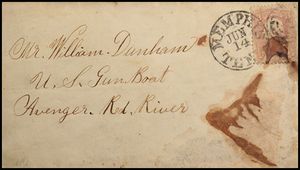 Mr. William Dunham
U. S. Gun Boat
Avenger Red River
MEMPHIS
JUN
14
TEN